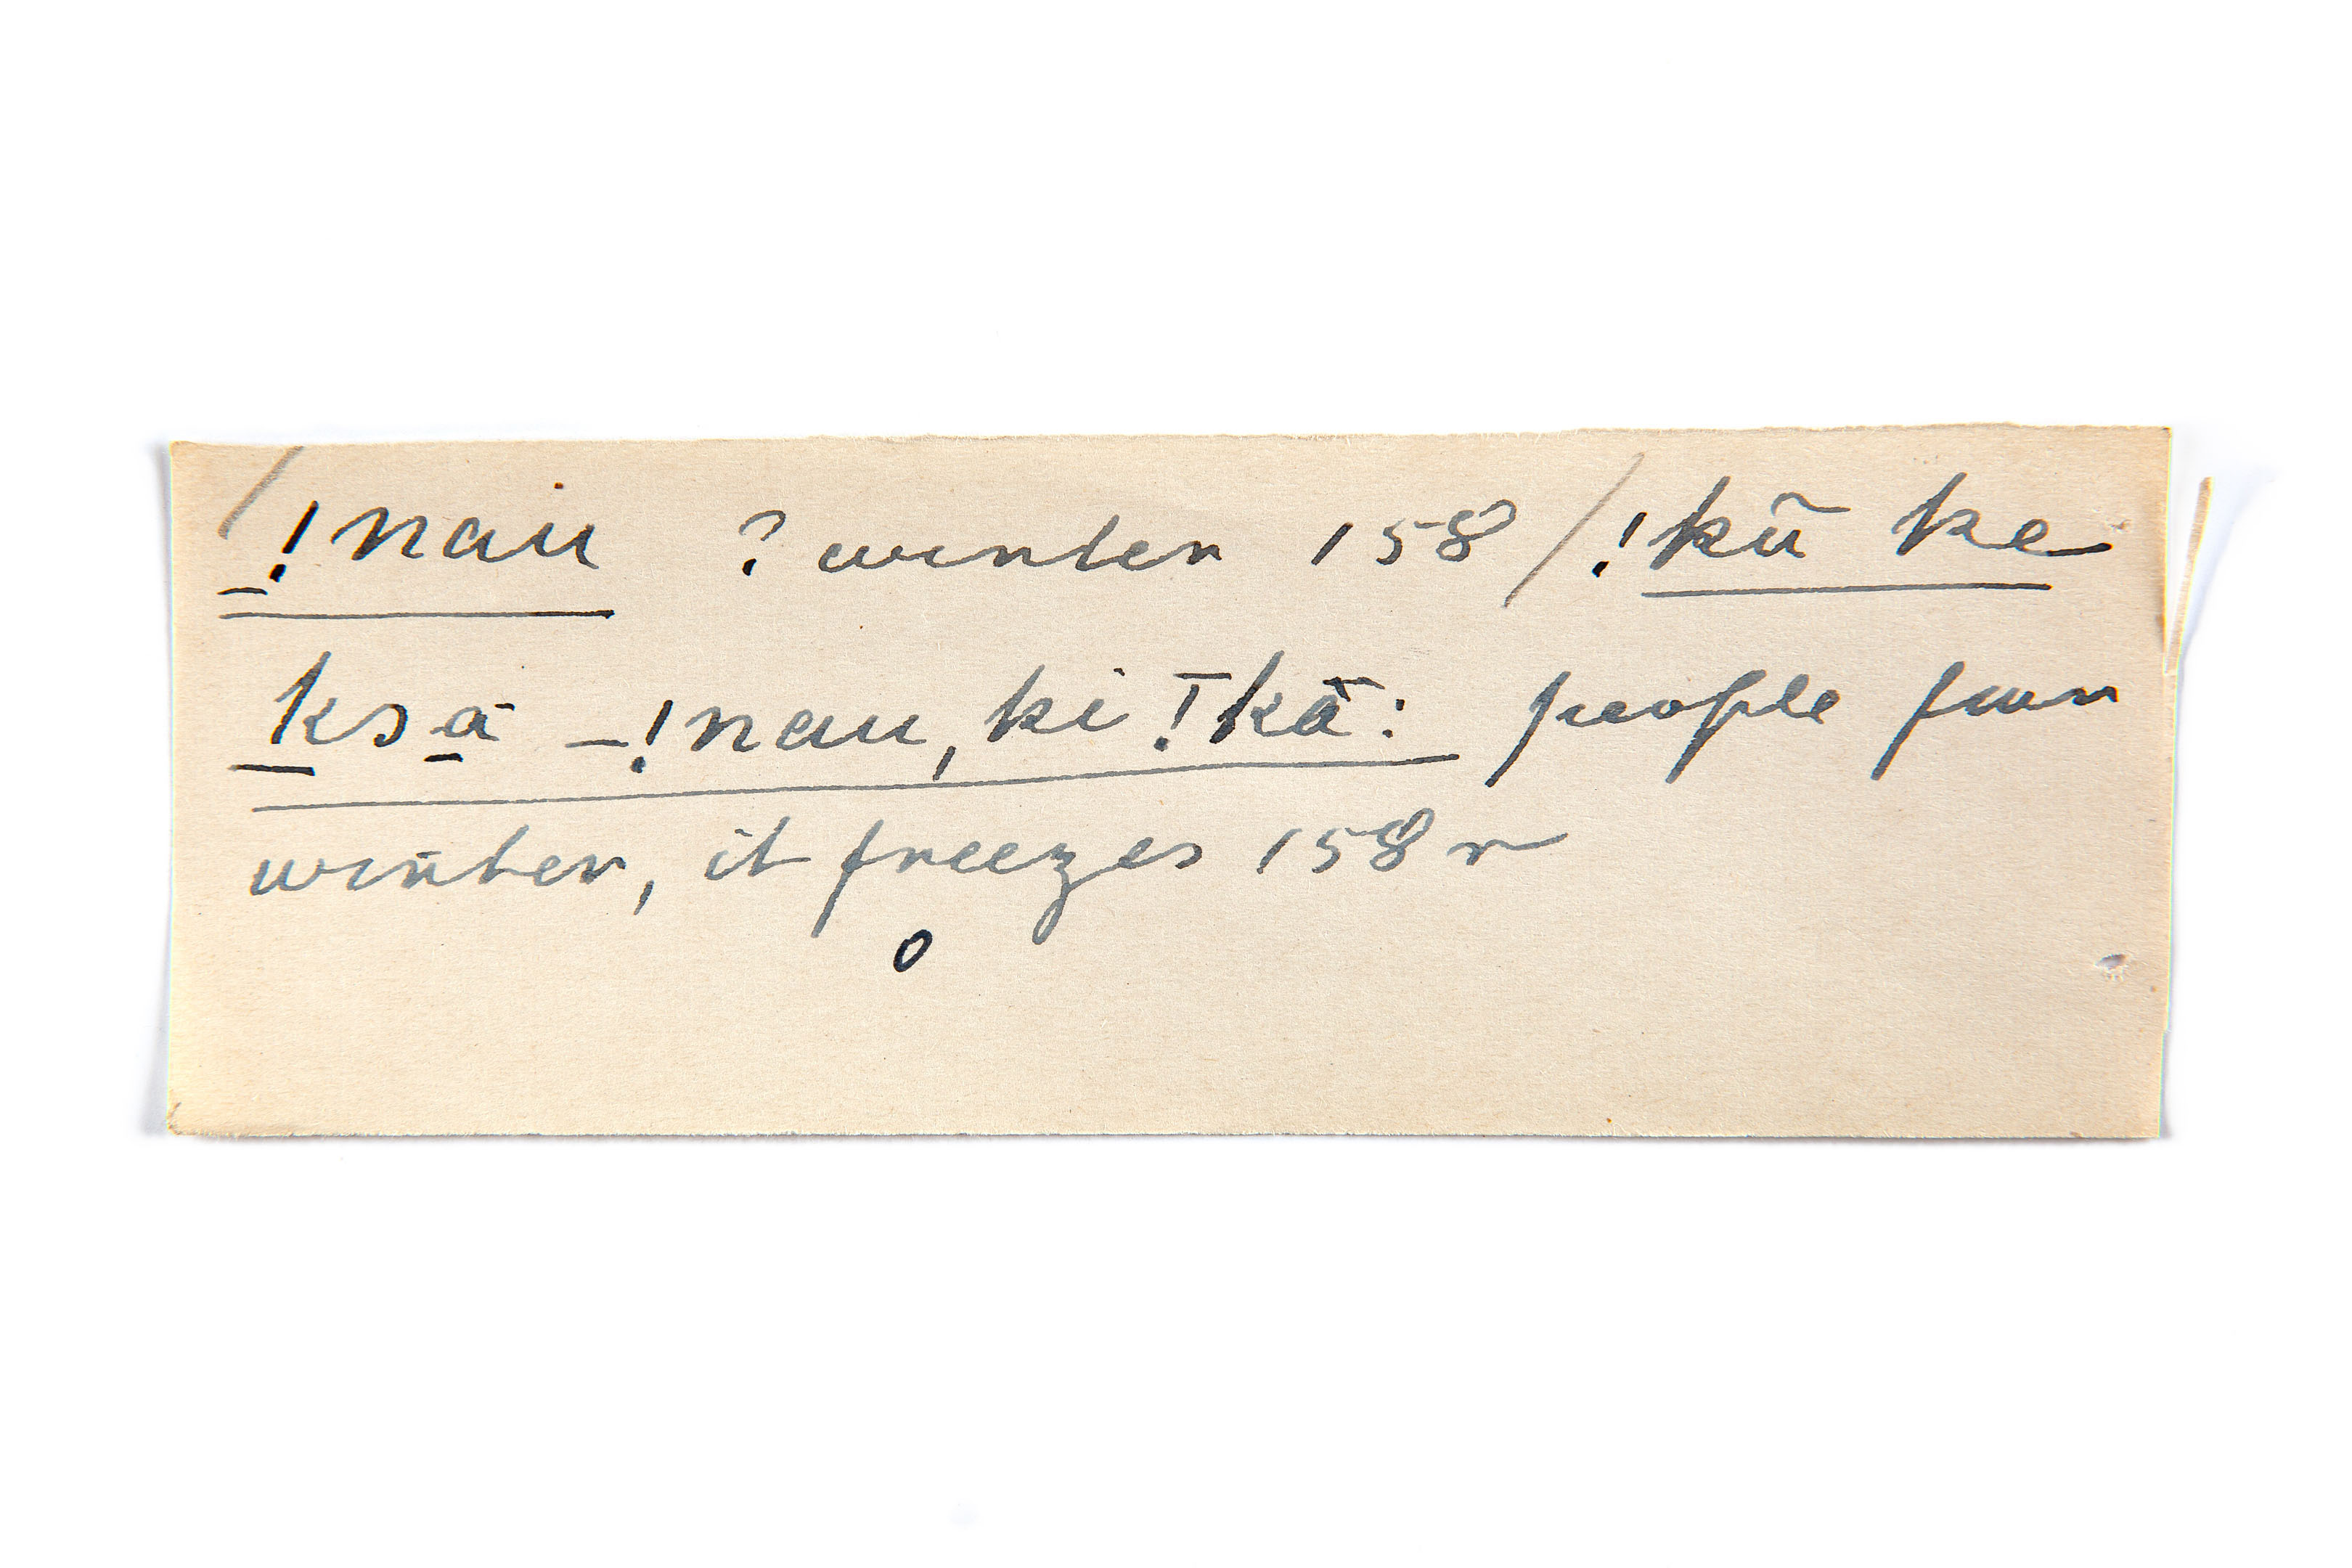 _!nau ? winter 158 / !kũ ke
ksā _!nau, ki !kā: people fear
winter, it freezes 158 r
o